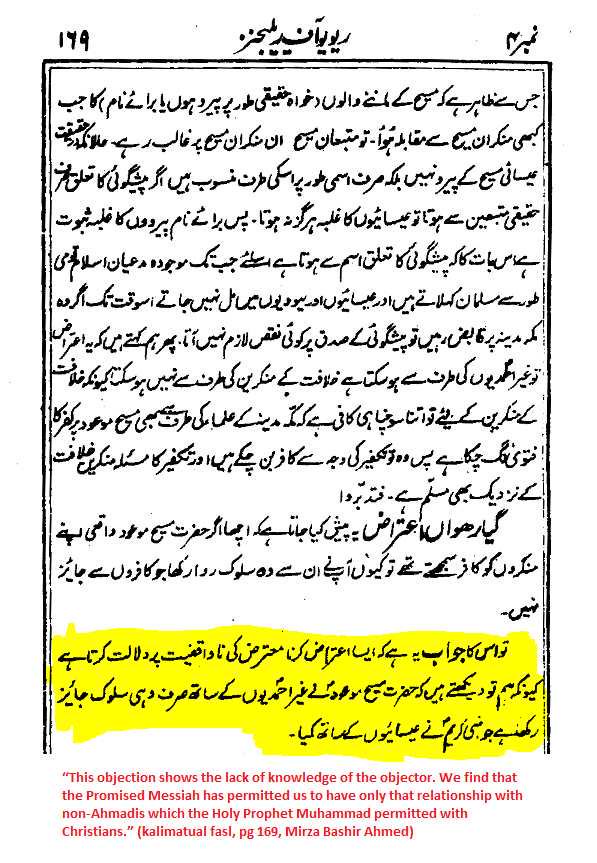 نمبر ۴ ریویو آف ریلیجنز ۱۶۹
جس سے ظاہر ہے کہ مسیح کے ماننے والوں (خواہ حقیقی طور پر پیرو ہوں یا برائے نام) کا جب
کبھی منکران مسیح سے مقابلہ ہوا۔ تو متبعان مسیح ان منکران مسیح پر غالب رہے۔ حالانکہ حقیقت
عیسائی مسیح کے پیرو نہیں بلکہ صرف اسمی طور پر اسکی طرف منسوب ہیں اگر پیشگوئی کا تعلق صرف
حقیقی متبعین سے ہوتا تو عیسائیوں کا غلبہ ہرگز نہ ہوتا۔ پس برائے نام پیرووں کا غلبہ ثبوت
ہے اس بات کا کہ پیشگوئی کا تعلق اسم سے ہوتا ہے اسلئے جب تک موجودہ مدعیان اسلام قومی
طور سے مسلمان کہلاتے ہیں اور عیسائیوں اور یہودیوں میں مل نہیں جاتے اسوقت تک اگر وہ
مکہ مدینہ پر قابض رہیں تو پیشگوئی کے صدق پر کوئی نقص لازم نہیں آتا۔ پھر ہم کہتے ہیں کہ یہ اعتراض
تو غیر احمدیوں کی طرف سے ہو سکتا ہے خلافت کے منکرین کی طرف سے نہیں ہو سکتا کیونکہ خلافت
کے منکرین کے لئے تو اتنا سوچنا ہی کافی ہے کہ مکہ مدینہ کے علماء کی طرف سے بھی مسیح موعود پر کفر کا
فتویٰ لگ چکا ہے پس وہ تو تکفیر کی وجہ سے کافر بن چکے ہیں اور تکفیر کا مسئلہ منکرین خلافت
کے نزدیک بھی مسلّم ہے۔ فتدبّروا
گیارھواں اعتراض یہ پیش کیا جاتا ہے کہ اچھا اگر حضرت مسیح موعود واقعی اپنے
منکروں کو کافر سمجھتے تھے تو کیوں آپنے ان سے وہ سلوک روا رکھا جو کافروں سے جائز
نہیں۔
تو اس کا جواب یہ ہے کہ ایسا اعتراض کرنا معترض کی ناواقفیت پر دلالت کرتا ہے
کیونکہ ہم تو دیکھتے ہیں کہ حضرت مسیح موعودؑ نے غیر احمدیوں کے ساتھ صرف وہی سلوک جائز
رکھا ہے جو نبی کریمؐ نے عیسائیوں کے ساتھ کیا۔
“This objection shows the lack of knowledge of the objector. We find that
the Promised Messiah has permitted us to have only that relationship with
non-Ahmadis which the Holy Prophet Muhammad permitted with
Christians.” (kalimatual fasl, pg 169, Mirza Bashir Ahmed)